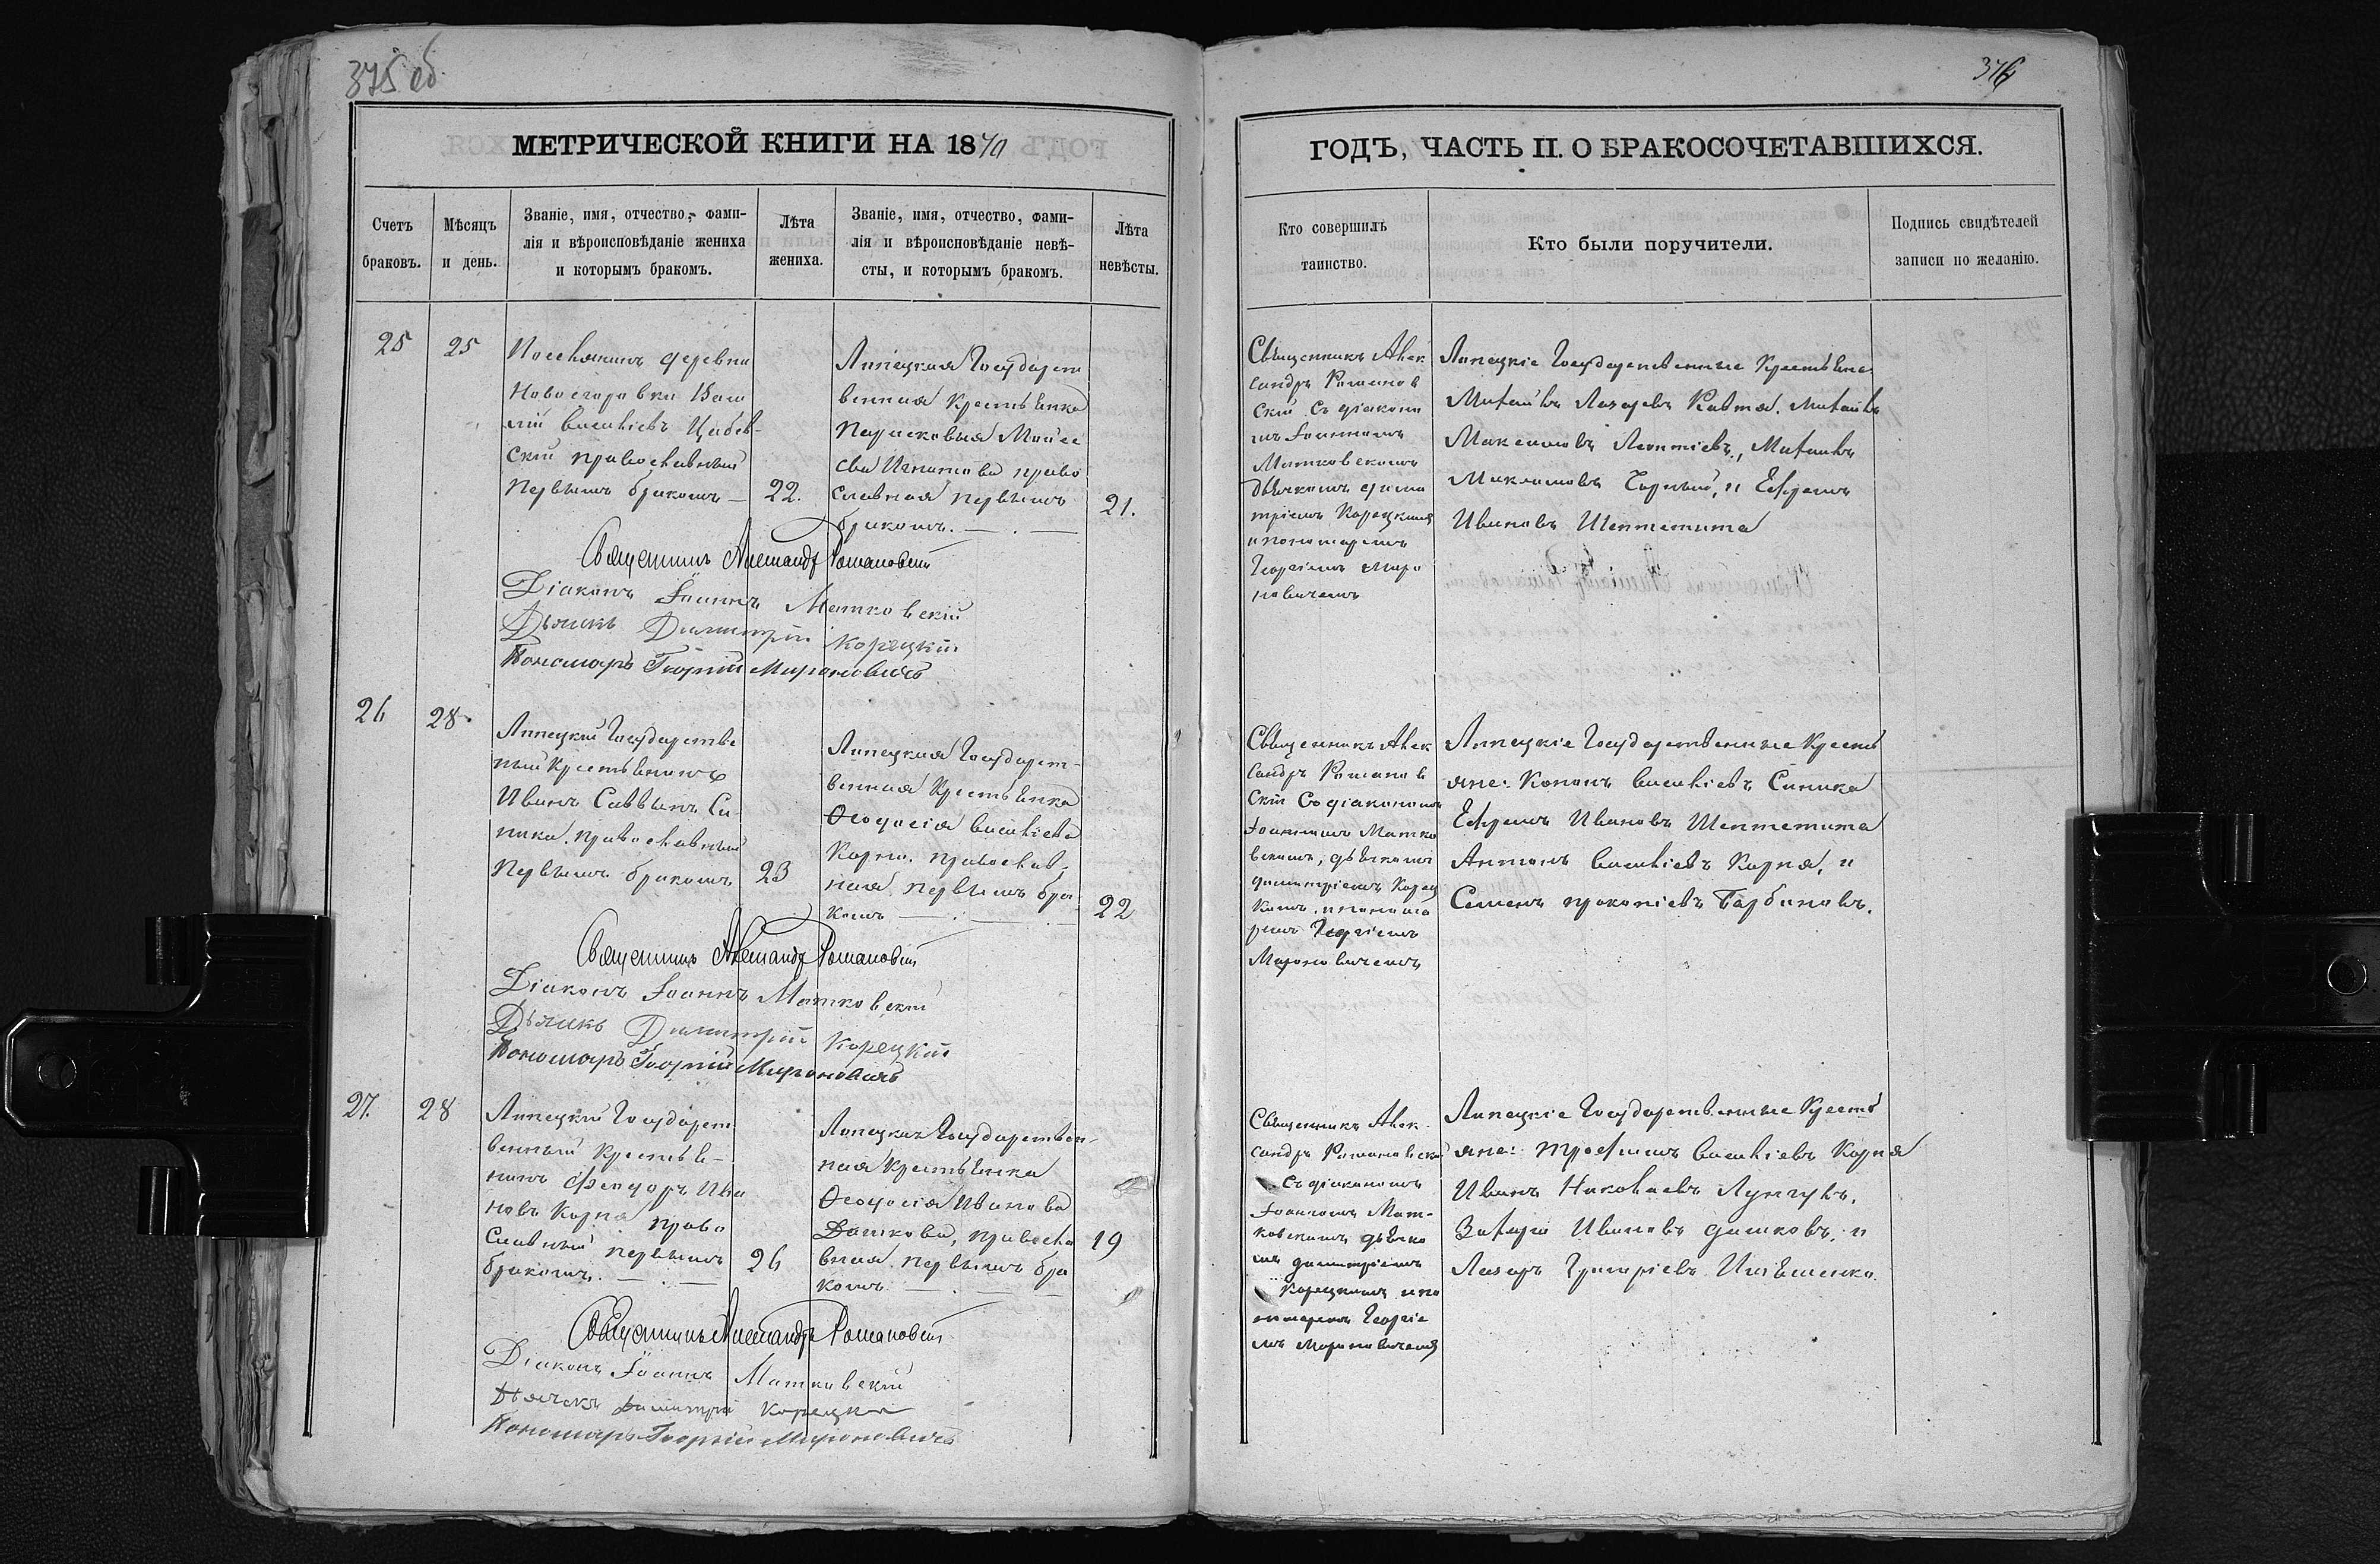 375 об
МЕТРИЧЕСКОЙ КНИГИ НА 1870
Счетъ браковъ.
Мѣсяцъ и день.
Званіе, имя, отчество, фами-
лія и вѣроисповѣданіе жениха
и которымъ бракомъ.
Лѣта
жениха.
Званіе, имя, отчество, фами-
лія и вѣроисповѣданіе невѣ-
сты, и которымъ бракомъ.
Лѣта
невѣсты.
25
25
Поселянинъ деревни
Новоегоровки Васи
лій Васильевъ
скій православный
первымъ бракомъ —
22.
Липецкая Государст
венная крестьянка
Моисе
ева Игнатова право
славная первымъ
бракомъ. — . —
21.
Священникъ Александръ Романовскій
Діаконъ Іоаннъ Матковскій
Дьячекъ Димитрій Корецкій
Пономарь Георгій Мироновичъ
26
28.
Липецкій Государстве
ный крестьянинъ
Иванъ Саввинъ Си
ника. православный
первымъ бракомъ
23
Липецкая Государст-
венная крестьянка
Ѳеодосія Васильева
Корня. православ
ная первымъ бра
комъ — . —
22
Священникъ Александръ Романовскій
Діаконъ Іоаннъ Матковскій
Дьячекъ Димитрій Корецкій
Пономарь Георгій Мироновичъ
27.
28
Липецкій Государст
венный крестья-
нинъ Феодоръ Ива
новъ Корня право
славный первымъ
бракомъ. — . —
26
Липецкая Государствен-
ная крестьянка
Ѳеодосія Иванова
Дашкова, правосла
вная. первымъ бра
комъ — . —
19
Священникъ Александръ Романовскій
Діаконъ Іоаннъ Матковскій
Дьячекъ Димитрій Корецкій
Пономарь Георгій Мироновичъ
376
ГОДЪ, ЧАСТЬ II. О БРАКОСОЧЕТАВШИХСЯ.
Кто совершилъ
таинство.
Кто были поручители.
Подпись свидѣтелей
записи по желанію.
Священникъ Алек
сандръ Романов
скій съ діакono
мъ Іоанномъ
Матковскимъ
дьячкомъ дими
тріемъ Корецкимъ
и пономаремъ
Георгіемъ Миро
новичемъ
Липецкіе Государственные Крестьяне
Михаилъ Лазаревъ Михаилъ
Максимовъ Леонтіевъ, Михаилъ
Максимовъ Чорный, и Ефремъ
Ивановъ Шептетита
Священникъ Алек
сандръ Романов
скій Съ діакономъ
Іоанномъ Матко
вскимъ, дьячкомъ
димитріемъ Корец
кимъ. и понома
ремъ Георгіемъ
Мироновичемъ
Липецкіе Государственные Кресть
яне: Кононъ Васильевъ Синика
Ефремъ Ивановъ Шептетита
Антонъ Васильевъ Корня, и
Семенъ прокопіевъ Барбиновъ.
Священникъ Алек
сандръ Романовскій
Съ діакономъ
Іоанномъ Мат-
ковскимъ дьячко
мъ димитріемъ
Корецкимъ и по
номаремъ Георгіе
мъ Мироновичемъ
Липецкіе Государственные Кресть
яне: Трофимъ Васильевъ Корня
Иванъ Николаевъ Лунгулъ.
Захарій Ивановъ дашковъ. и
Лазарь Григоріевъ